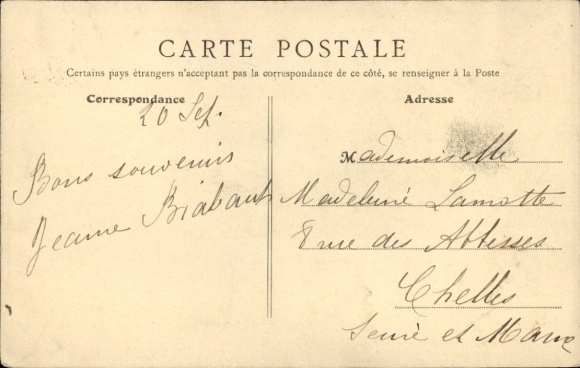 CARTE POSTALE
Certains pays étrangers n'acceptant pas la correspondance de ce côté, se renseigner à la Poste
Correspondance
20 Sep.
Bons souvenirs
Jeanne Biabaut
Adresse
Mademoiselle
Madeleine Lamotte
8 rue des Abbesses
Chelles
Seine et Marne